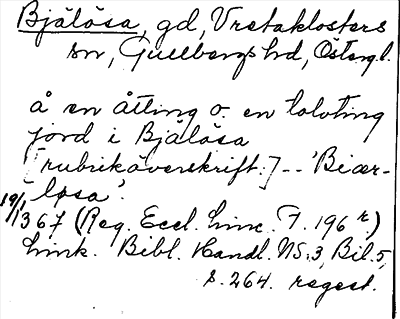 Bjälösa, gd, Vretaklosters
sn, Gullbergs hd, Östergl.
å en åtting o. en tolvting
jord i Bjälösa
[rubriköverskrift:] -- 'Biær-
løsa'.
19/1 1367 (Reg. Eccl. Linc. F. 196 r.)
Link. Bibl. Handl. NS:3, Bil. 5,
s. 264. regest.